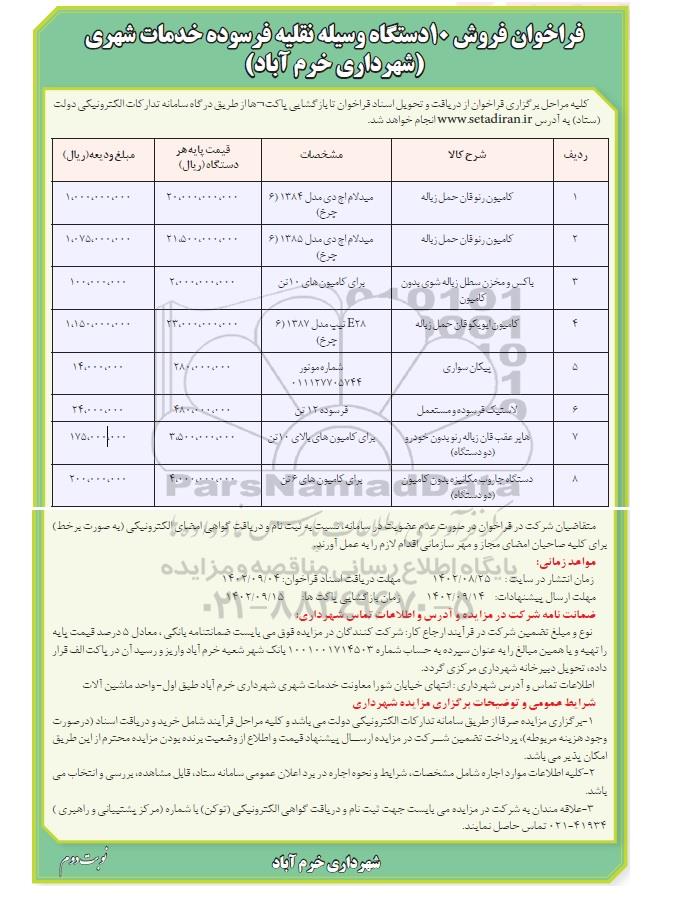 فراخوان فروش ۱۰ دستگاه وسیله نقلیه فرسوده خدمات شهری
(شهرداری خرم آباد)
کلیه مراحل برگزاری فراخوان از دریافت و تحویل اسناد فراخوان تا بازگشایی پاکت¬ها از طریق درگاه سامانه تدارکات الکترونیکی دولت
(ستاد) به آدرس www.setadiran.ir انجام خواهد شد.
ردیف شرح کالا مشخصات قیمت پایه هر دستگاه (ریال) مبلغ ودیعه (ریال)
۱ کامیون رنو قان حمل زباله میدلام اچ دی مدل ۱۳۸۴ (۶ چرخ) ۲۰،۰۰۰،۰۰۰،۰۰۰ ۱،۰۰۰،۰۰۰،۰۰۰
۲ کامیون رنو قان حمل زباله میدلام اچ دی مدل ۱۳۸۵ (۶ چرخ) ۲۱،۵۰۰،۰۰۰،۰۰۰ ۱،۰۷۵،۰۰۰،۰۰۰
۳ باکس و مخزن سطل زباله شوی بدون کامیون برای کامیون های ۱۰ تن ۲،۰۰۰،۰۰۰،۰۰۰ ۱۰۰،۰۰۰،۰۰۰
۴ کامیون ایویکو قان حمل زباله E28 تیپ مدل ۱۳۸۷ (۶ چرخ) ۲۳،۰۰۰،۰۰۰،۰۰۰ ۱،۱۵۰،۰۰۰،۰۰۰
۵ پیکان سواری شماره موتور ۰۱۱۱۲۷۷۰۵۷۴۴ ۲۸۰،۰۰۰،۰۰۰ ۱۴،۰۰۰،۰۰۰
۶ لاستیک فرسوده و مستعمل فرسوده ۱۲ تن ۴۸۰،۰۰۰،۰۰۰ ۲۴،۰۰۰،۰۰۰
۷ هاپر عقب قان زباله رنو بدون خودرو (دو دستگاه) برای کامیون های بالای ۱۰ تن ۳،۵۰۰،۰۰۰،۰۰۰ ۱۷۵،۰۰۰،۰۰۰
۸ دستگاه جاروب مکانیزه بدون کامیون (دو دستگاه) برای کامیون های ۶ تن ۴،۰۰۰،۰۰۰،۰۰۰ ۲۰۰،۰۰۰،۰۰۰
ParsNamadData
متقاضیان شرکت در فراخوان در صورت عدم عضویت در سامانه، نسبت به ثبت نام و دریافت گواهی امضای الکترونیکی (به صورت برخط)
برای کلیه صاحبان امضای مجاز و مهر سازمانی اقدام لازم را به عمل آورند.
مواعد زمانی:
زمان انتشار در سایت : ۱۴۰۲/۰۸/۲۵ مهلت دریافت اسناد فراخوان: ۱۴۰۲/۰۹/۰۴
مهلت ارسال پیشنهادات: ۱۴۰۲/۰۹/۱۴ زمان بازگشایی پاکت ها: ۱۴۰۲/۰۹/۱۵
پایگاه اطلاع رسانی مناقصه و مزایده
۰۲۱-۸۸۳۴۹۶۷۰-۵
ضمانت نامه شرکت در مزایده و آدرس و اطلاعات تماس شهرداری:
نوع و مبلغ تضمین شرکت در فرآیند ارجاع کار: شرکت کنندگان در مزایده فوق می بایست ضمانتنامه بانکی ، معادل ۵ درصد قیمت پایه
را تهیه و یا همین مبالغ را به عنوان سپرده به حساب شماره ۱۰۰۱۰۰۱۷۱۴۵۰۳ بانک شهر شعبه خرم آباد واریز و رسید آن در پاکت الف قرار
داده، تحویل دبیرخانه شهرداری مرکزی گردد.
اطلاعات تماس و آدرس شهرداری : انتهای خیابان شورا معاونت خدمات شهری شهرداری خرم آباد طبق اول- واحد ماشین آلات
شرایط عمومی و توضیحات برگزاری مزایده شهرداری
۱-برگزاری مزایده صرفا از طریق سامانه تدارکات الکترونیکی دولت می باشد و کلیه مراحل فرآیند شامل خرید و دریافت اسناد (در صورت
وجود هزینه مربوطه)، پرداخت تضمین شرکت در مزایده ارسال پیشنهاد قیمت و اطلاع از وضعیت برنده بودن مزایده محترم از این طریق
امکان پذیر می باشد.
۲-کلیه اطلاعات موارد اجاره شامل مشخصات، شرایط و نحوه اجاره در برد اعلان عمومی سامانه ستاد، قابل مشاهده، بررسی و انتخاب می
باشد.
۳-علاقه مندان به شرکت در مزایده می بایست جهت ثبت نام و دریافت گواهی الکترونیکی (توکن) با شماره (مرکز پشتیبانی و راهبری )
۰۲۱-۴۱۹۳۴ تماس حاصل نمایند.
شهرداری خرم آباد
نوبت دوم